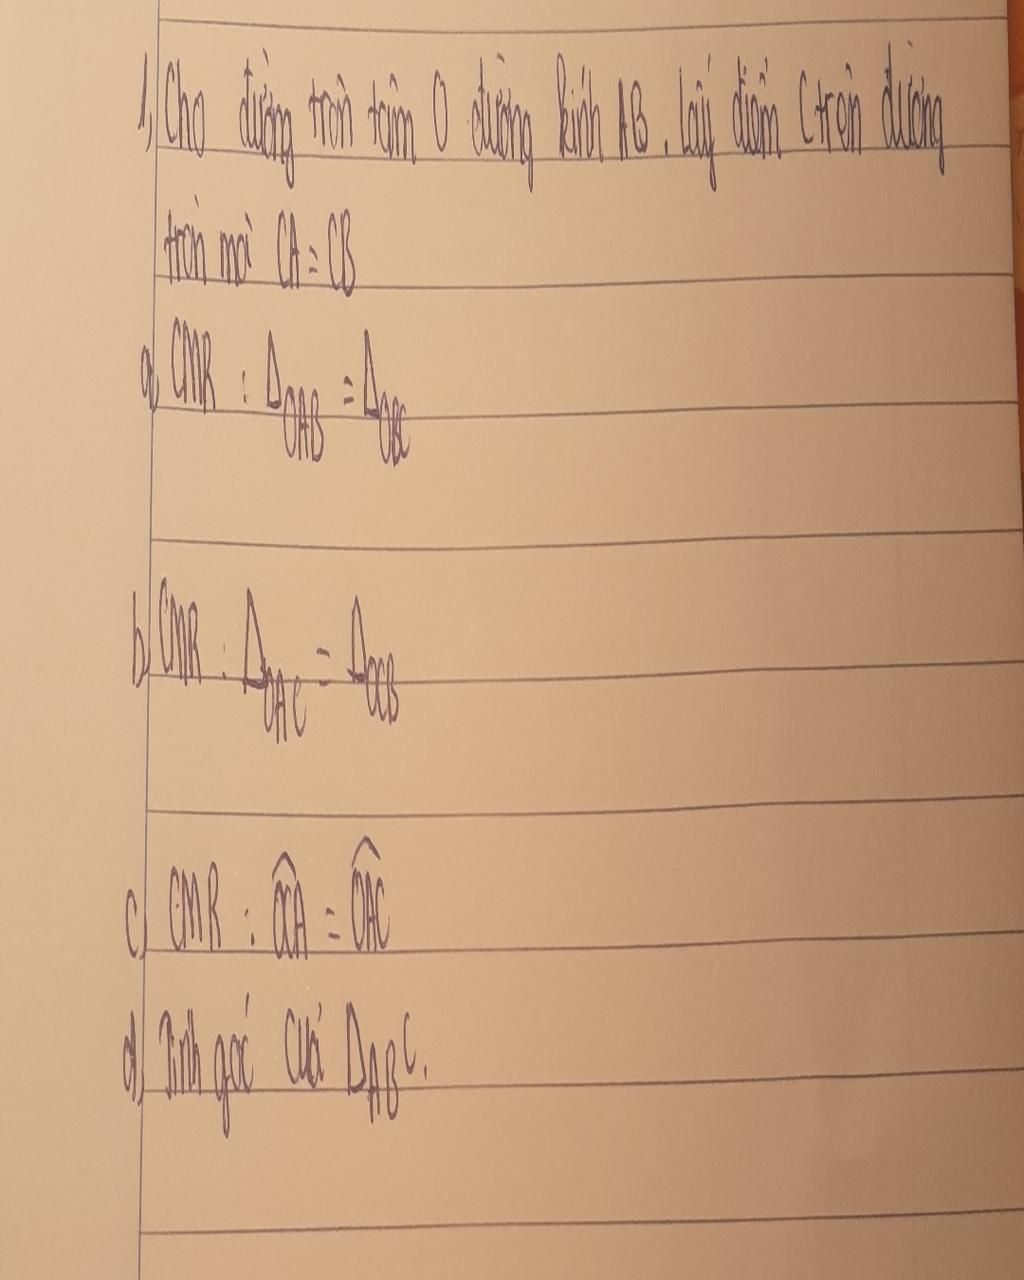 1, Cho đường tròn tâm O đường kính AB. Lấy điểm C trên đường
tròn mà CA = CB
a, CMR : Δ OAB = Δ OBC
b, CMR : Δ OAC = Δ OCB
c, CMR : OCA = OAC
d, Tính góc của Δ ABC.